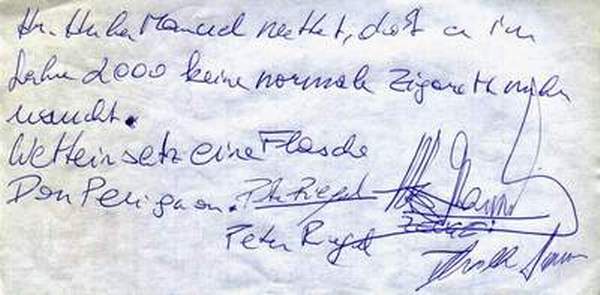 Hr. Huber Manuel wettet, daß er im
Jahre 2000 keine normale Zigarette mehr
raucht.
Wetteinsatz eine Flasche
Don Perignon. Peter Riegel
Peter Riegel